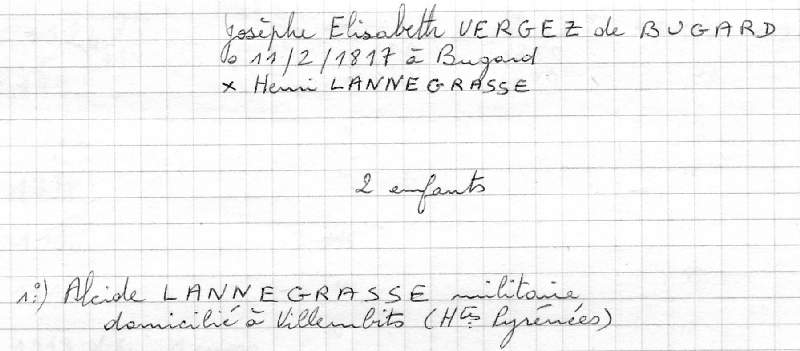 Josèphe Elisabeth VERGEZ de BUGARD
o 11/2/1817 à Bugard
x Henri LANNEGRASSE
2 enfants
1º) Alcide LANNEGRASSE militaire
domicilié à Villembits (Htes Pyrénées)